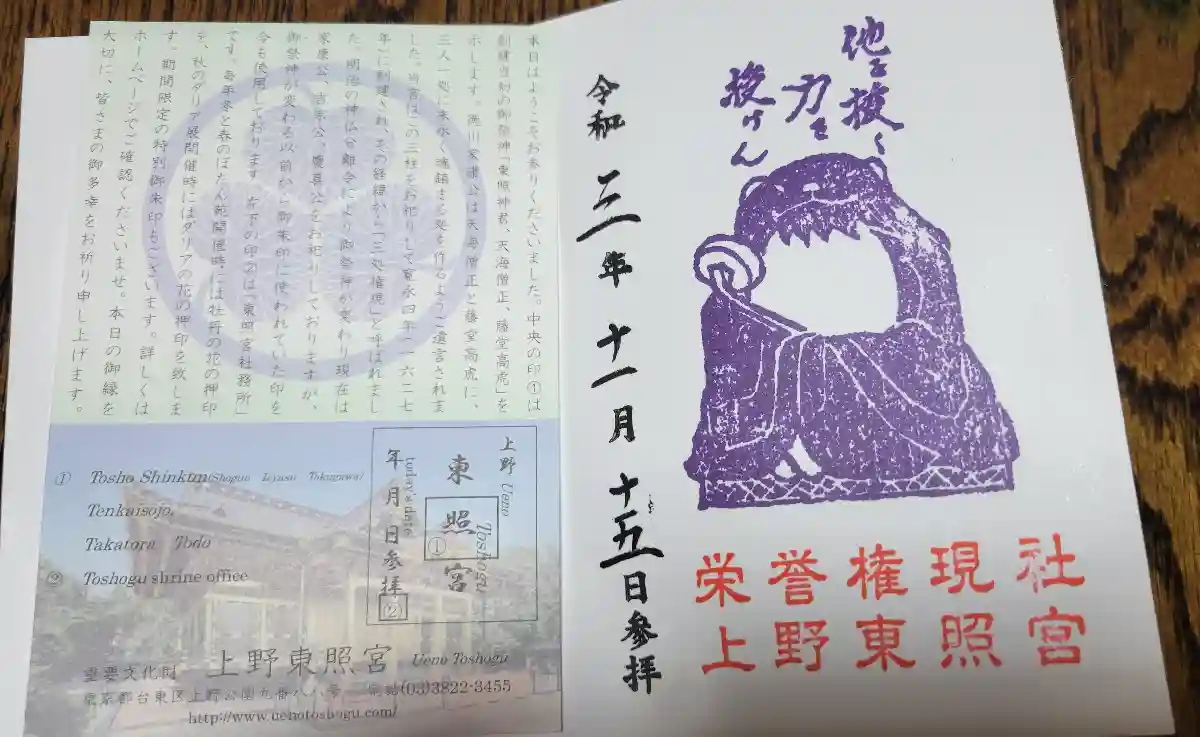 他を抜く
力を
授けん
令和三年十一月十五日参拝
栄誉権現社
上野東照宮
本日はようこそお参りくださいました。中央の印①は
創建当初の御祭神「東照神君、天海僧正、藤堂高虎」を
示します。徳川家康公は天海僧正と藤堂高虎に、
三人一処に末永く魂鎮まる処を作るようご遺言されま
した。当宮はこの三柱をお祀りして寛永四年(一六二七
年)に創建され、その経緯から「三処権現」と呼ばれまし
た。明治の神仏分離令により御祭神が変わり現在は
家康公、吉宗公、慶喜公をお祀りしておりますが、
御祭神が変わる以前から御朱印に使われていた印を
今も使用しております。右下の印②は「東照宮社務所」
です。毎年冬と春のぼたん苑開催時には牡丹の花の押印
を、秋のダリア展開催時にはダリアの花の押印を致しま
す。期間限定の特別御朱印もございます。詳しくは
ホームページでご確認くださいませ。本日の御縁を
大切に、皆さまの御多幸をお祈り申し上げます。
① Tosho Shinkun(Shogun Ieyasu Tokugawa)
Tenkaisojo,
Takatora Todo
② Toshogu shrine office
上野 Ueno
東照宮 Toshogu
①
today's date
年月日参拝
②
重要文化財 上野東照宮 Ueno Toshogu
東京都台東区上野公園九番八八号 電話(03)3822-3455
http://www.uenotoshogu.com/